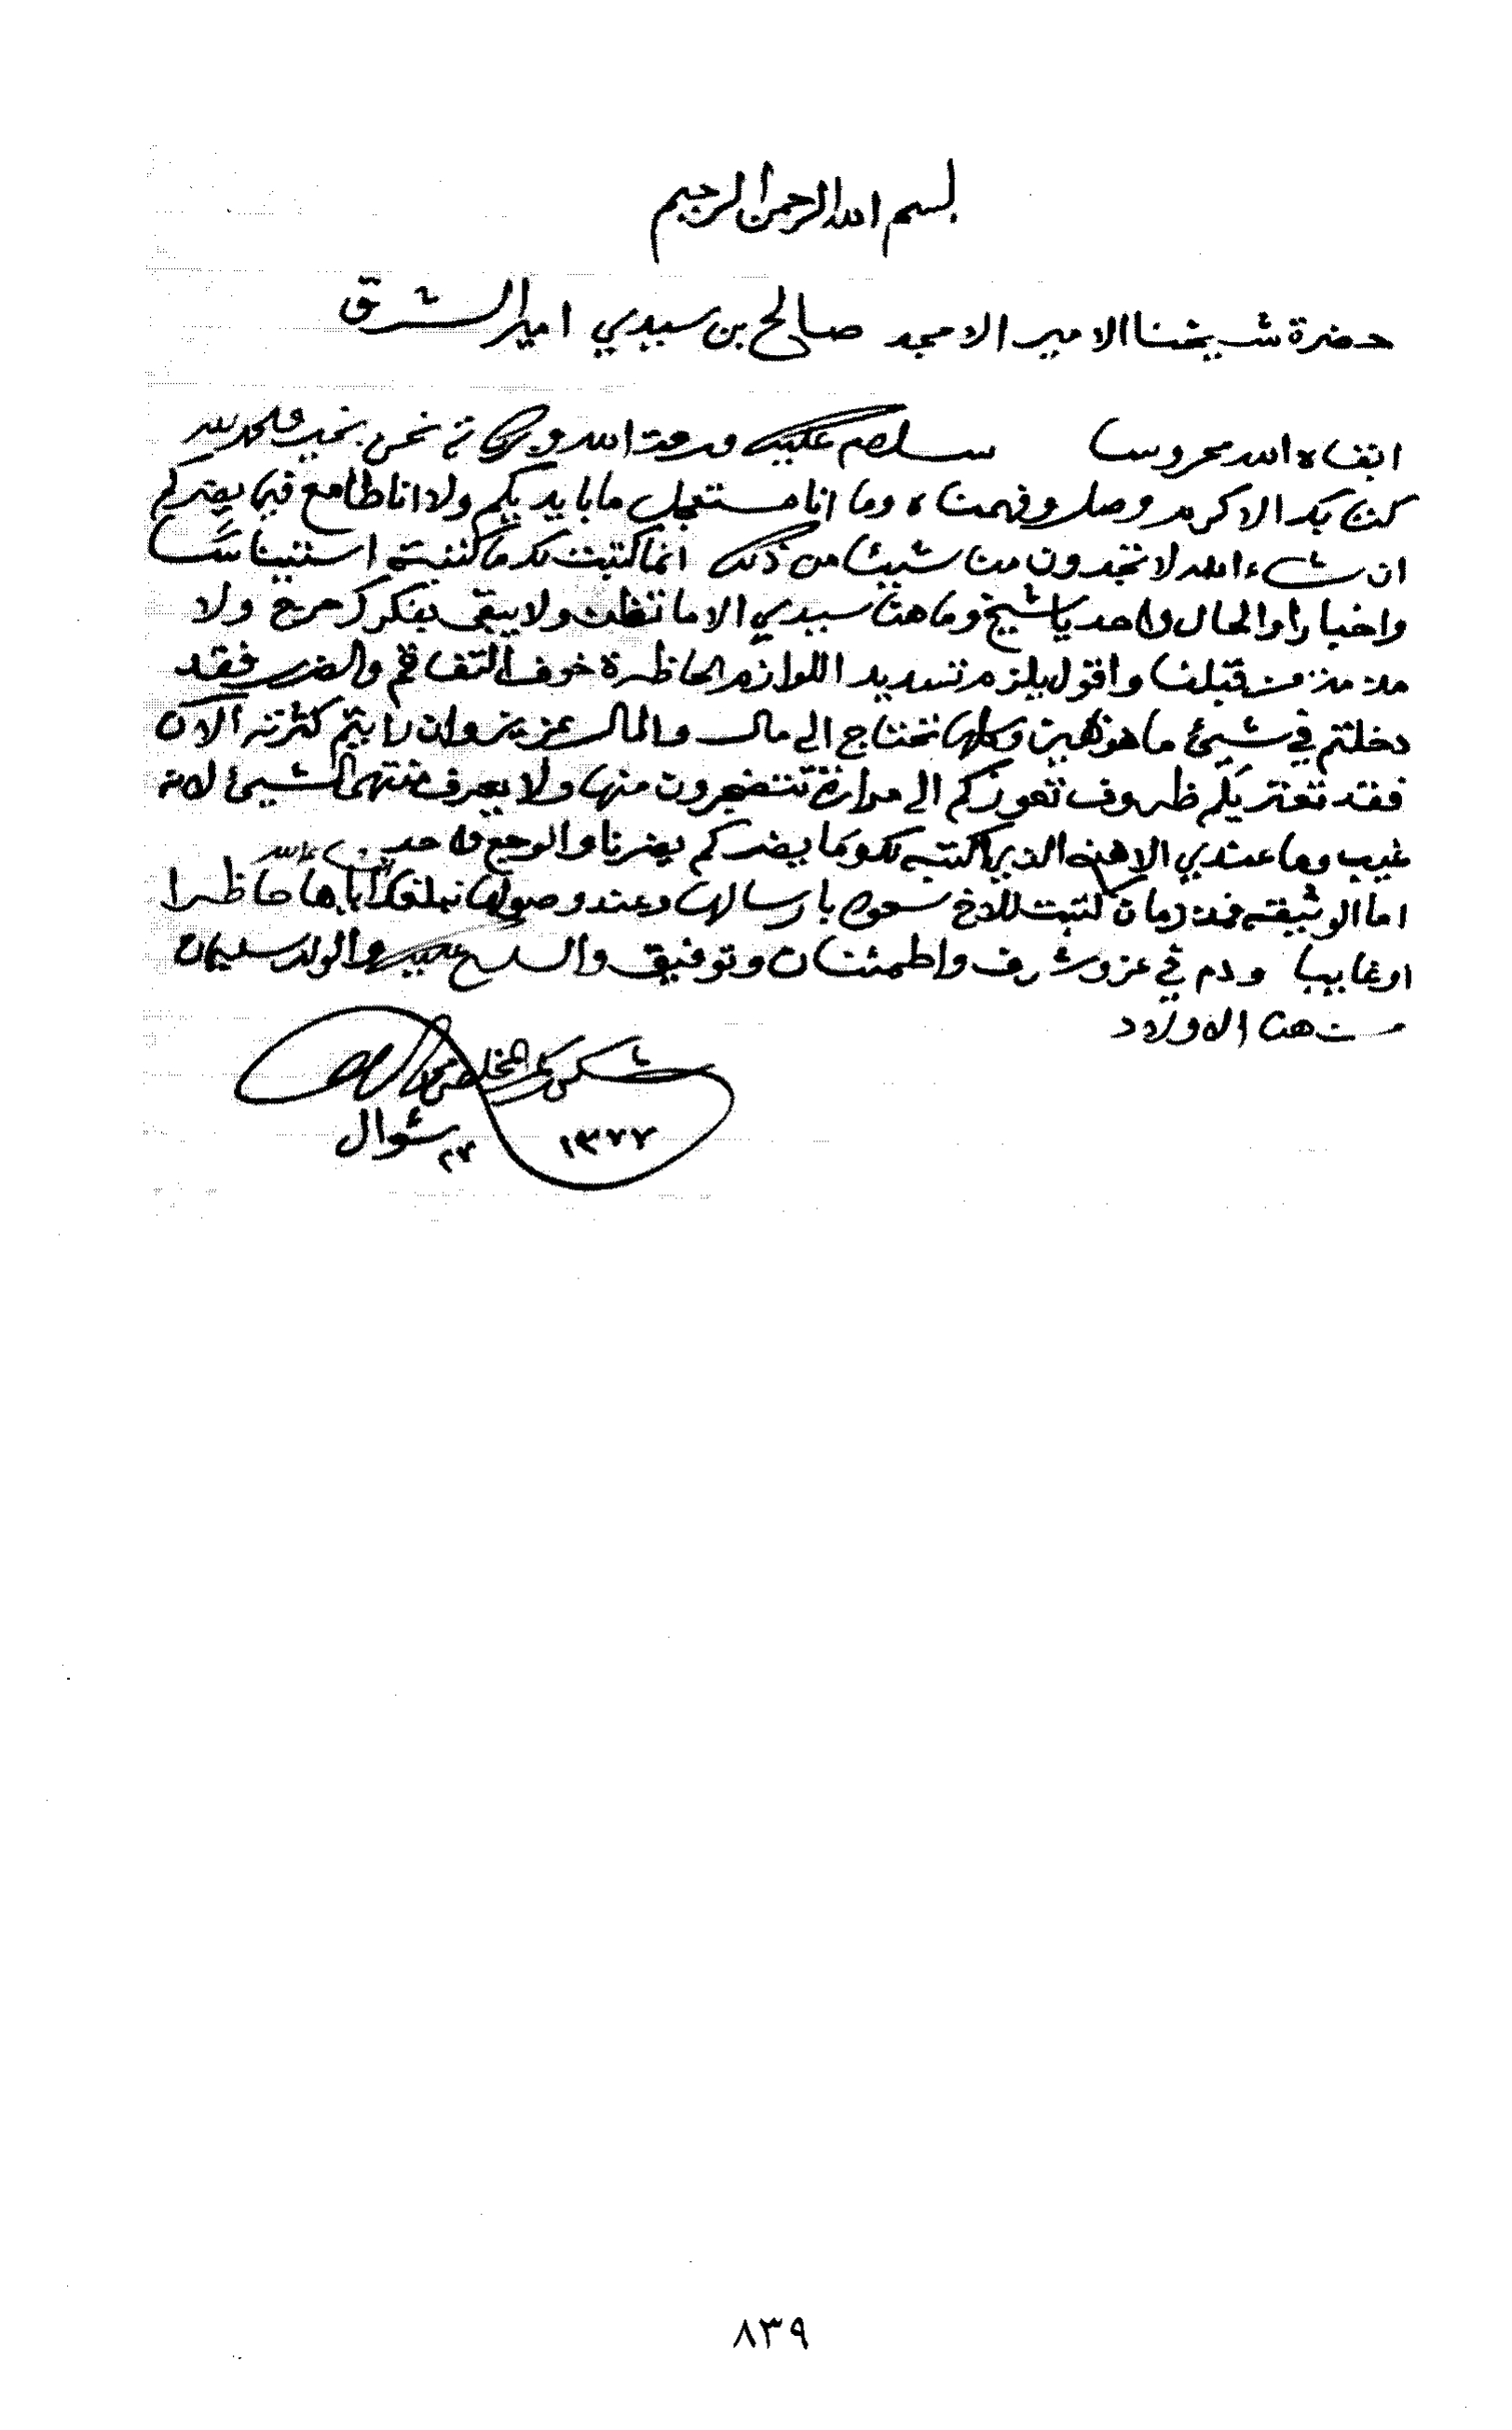 بسم الله الرحمن الرحيم
حضرة شيخنا الامير الامجد صالح بن سيدي امير الشرق
ابقاه الله محروسا سلام عليك ورحمة الله وبركاته نحن بخير والحمد لله
كتابك الاكرم وصل وفهمناه وما انا مستعجل ما بايديكم ولا انا طامع فيما يضركم
ان شاء الله لا تجدون منا شيئا من ذلك انما كتبت لك ما كتبته استيناسًا
واخبارا والحال واحد يا شيخ وما هنا سيدي الا ما تظن ولا يبقى بفكرك حرج ولا
من قبلنا واقول يلزم تسديد اللوازم الحاظرة خوف التفاقم والضرر فقد
دخلتم في شيئ ما هو هين وكلها تحتاج الى مال والمال عزيز وان رايتم كثرته الآن
فقد تعتريكم ظروف تعوزكم الى مرارة تتضجرون منها ولا يعرف منتهى الشيئ لانه
غيب وما عندي الا هذا الذي اكتبه لك وما يضركم يضرنا والوجع واحد
اما الوثيقة فمن زمان كتبت للاخ سعود بارسالها وعند وصولها نبلغك اياها حاظرا
او غايبا ودم في عز وشرف واطمئنان وتوفيق والسلام عليك والولد سليمان
من هنا الاولاد
شكركم المخلص
١٣٧٧
٢٣ شوال
٨٣٩